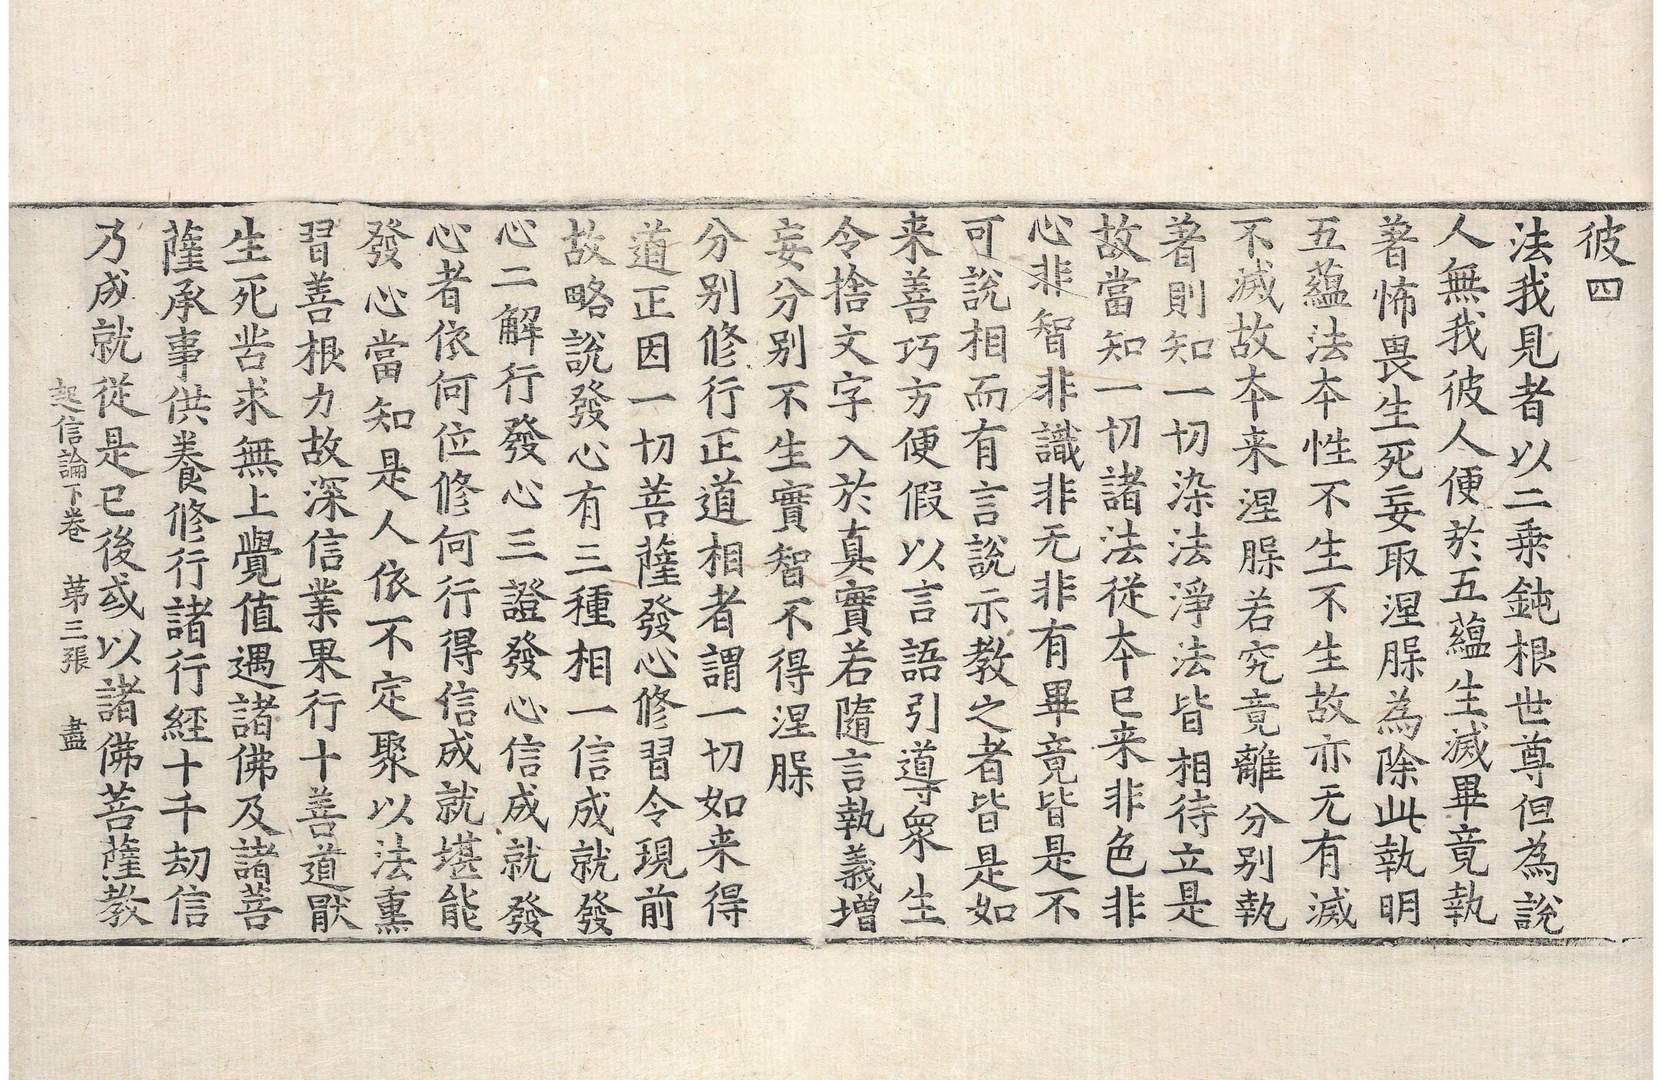 彼四
法我見者以二乗鈍根世尊但為說
人無我彼人便於五蘊生滅畢竟執
著怖畏生死妄取涅槃為除此執明
五蘊法本性不生不生故亦无有滅
不滅故本来涅槃若究竟離分別執
著則知一切染法淨法皆相待立是
故當知一切諸法從本已来非色非
心非智非識非无非有畢竟皆是不
可說相而有言說示教之者皆是如
来善巧方便假以言語引導衆生
令捨文字入於真實若隨言執義增
妄分別不生實智不得涅槃
分別修行正道相者謂一切如来得
道正因一切菩薩發心修習令現前
故略說發心有三種相一信成就發
心二解行發心三證發心信成就發
心者依何位修何行得信成就堪能
發心當知是人依不定聚以法熏
習善根力故深信業果行十善道厭
生死苦求無上覺值遇諸佛及諸菩
薩承事供養修行諸行經十千劫信
乃成就從是已後或以諸佛菩薩教
起信論下卷 苐三張 盡